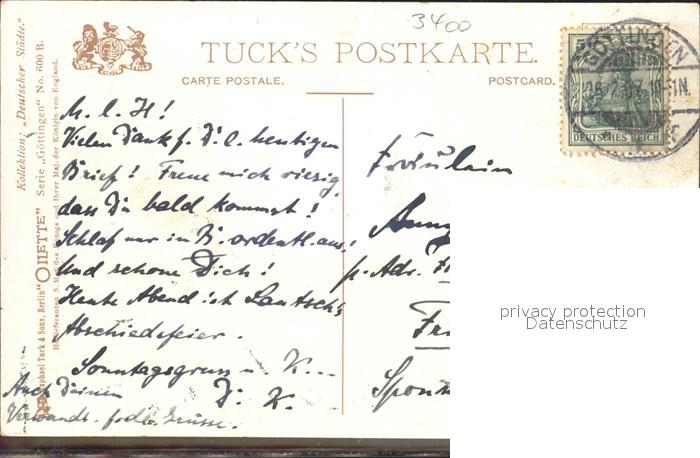 3400
TUCK'S POSTKARTE.
CARTE POSTALE.
POSTCARD.
Kollektion: „Deutscher Städte."
Serie „Göttingen" No. 600 B.
"OILETTE"
Raphael Tuck & Sons, Berlin
Hoflieferanten S. Maj. des Königs und Ihrer Maj. der Königin von England.
GÖTTINGEN
DEUTSCHES REICH
M. l. H!
Vielen Dank f. D. l. heutigen
Brief! Freue mich riesig,
dass Du bald kommst!
Schlaf nur in B. ordentl. aus,
und schone Dich!
Heute Abend ist Lautsch's
Abschiedsfeier.
Sonntagsgruss u. K...
D. K.
Auch Deinen
Verwandt. frdl. Grüsse.
Fräulein
Anny
p. Adr.
Spon
privacy protection
Datenschutz